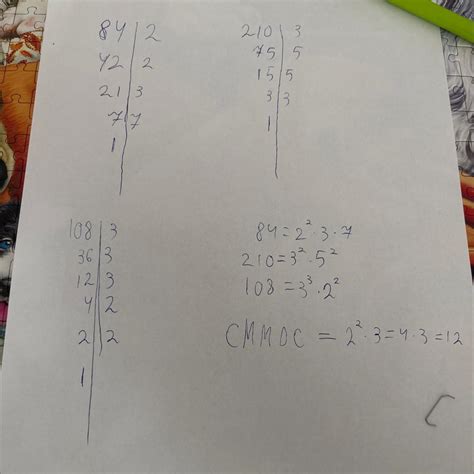 84 | 2
42 | 2
21 | 3
7 | 7
1 |
210 | 3
75 | 5
15 | 5
3 | 3
1 |
108 | 3
36 | 3
12 | 3
4 | 2
2 | 2
1 |
84 = 2² · 3 · 7
210 = 3² · 5²
108 = 3³ · 2²
CMMDC = 2² · 3 = 4 · 3 = 12